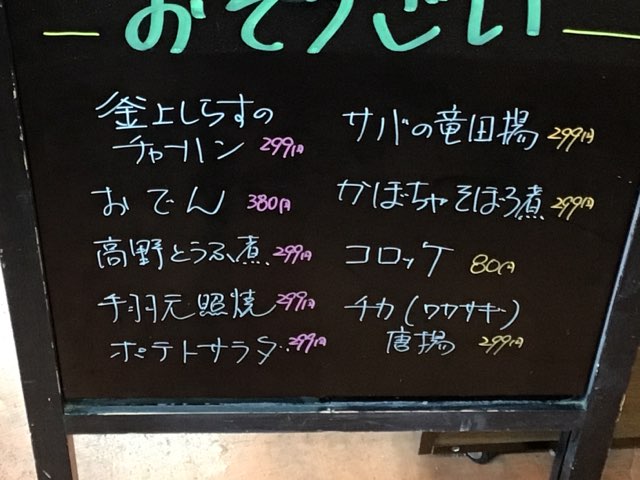 おそうざい
釜上しらすの
チャーハン 299円
おでん 380円
高野とうふ煮 299円
手羽元照焼 299円
ポテトサラダ 299円
サバの竜田揚 299円
かぼちゃそぼろ煮 299円
コロッケ 80円
チカ(ワカサギ)
唐揚 299円